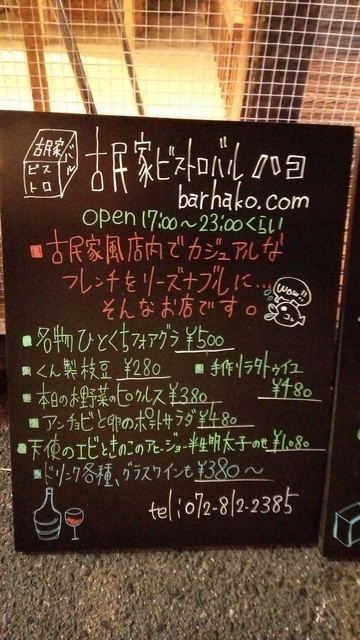 古民家
ビストロ
バル
古民家ビストロバル ハコ
barhako.com
open 17:00〜23:00くらい
古民家風店内でカジュアルな
フレンチをリーズナブルに…
そんなお店です。
wow!!
名物 ひとくちフォアグラ ¥500
くん製枝豆 ¥280
手作りラタトゥイユ ¥480
本日のお野菜のピクルス ¥380
アンチョビと卵のポテトサラダ ¥480
天使のエビときのこのアヒージョ 半生明太子のせ ¥1,080
ドリンク各種、グラスワインも ¥380〜
tel:072-812-2385